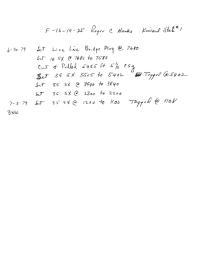 F-16-19-25 Roger C Hanks Kincaid State #1
6-30 79 Set Wire Line Bridge Plug @ 7680
Set 10 SX @ 7680 to 7580
Cut & Pulled 5455 ft 5½ Csg
Set 35 SX 5505 to 5402 Tagged @ 5402
Set 35 SX @ 3940 to 3840
Set 35 SX @ 2300 to 2200
7-2 79 Set 35 SX @ 1200 to 1100 Tagged @ 1108